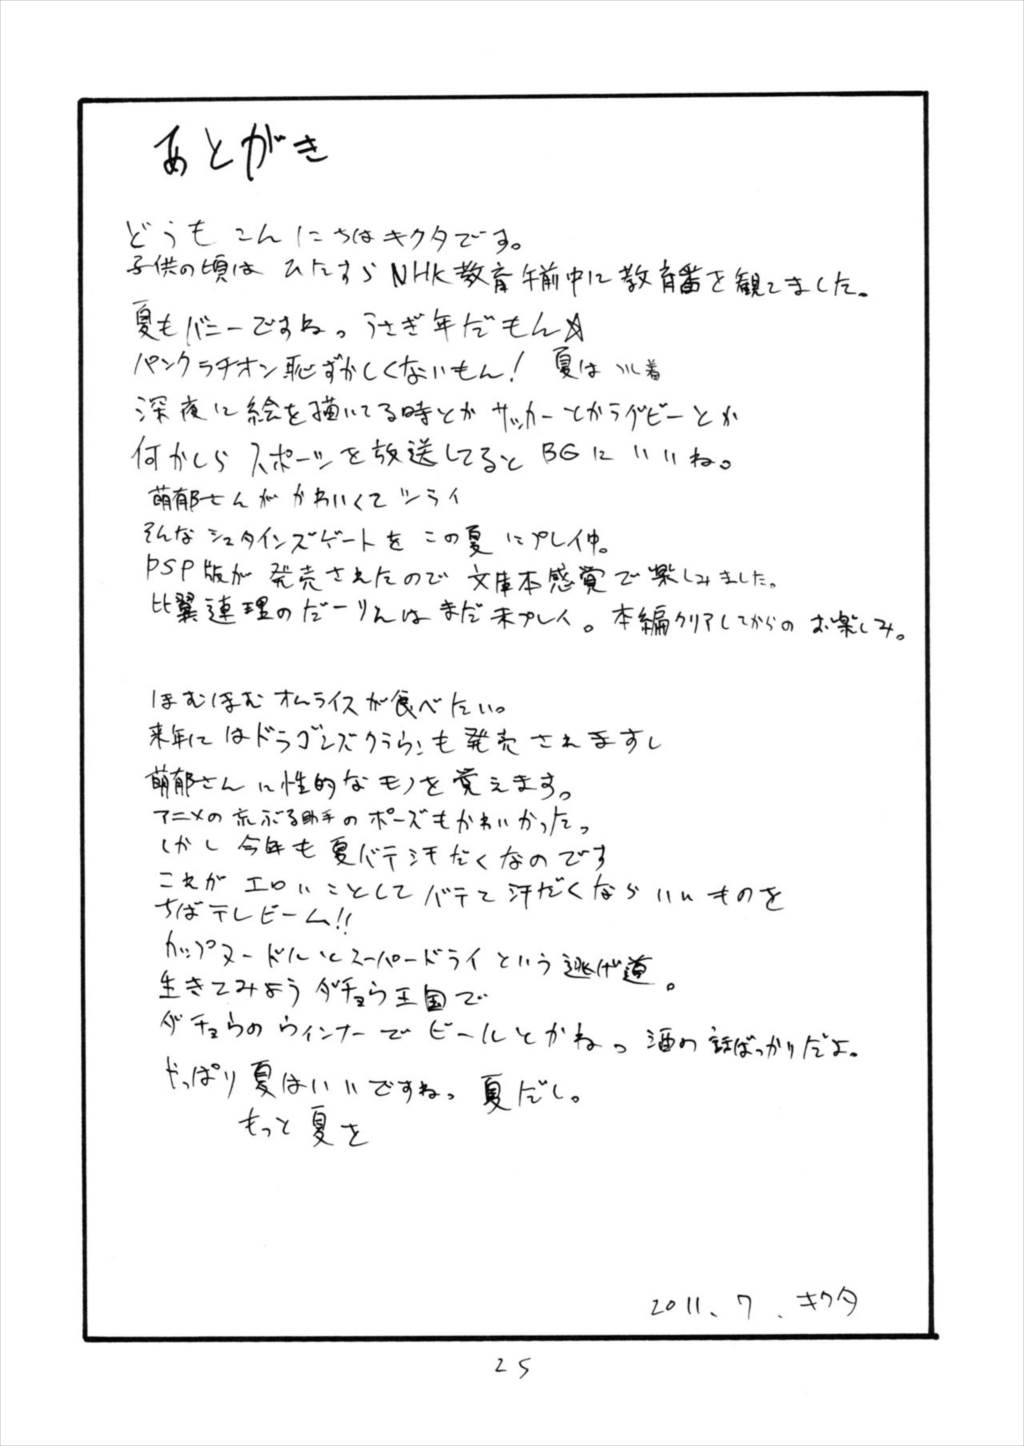 あとがき
どうも こんにちは キクタです。
子供の頃は ひたすら NHK教育 午前中に 教育番を観てました。
夏もバニーですねっ うさぎ年だもん☆
パンクラチオン恥ずかしくないもん! 夏は 着
深夜に絵を描いてる時とか サッカーとかラグビーとか
何かしら スポーツを放送してると BGに いいね。
萌郁さんが かわいくて ツライ
そんな シュタインズゲートを この夏にプレイ中。
PSP版が 発売されたので 文庫本感覚で楽しみました。
比翼連理のだーりんは まだ 未プレイ。本編クリアしてからの お楽しみ。
ほむほむ オムライスが食べたい。
来年にはドラゴンズクラウンも発売されますし
萌郁さんに性的なモノを覚えます。
アニメの荒ぶる助手のポーズもかわいかったっ
しかし 今年も 夏バテ汗だくなのです
これが エロいことして バテて 汗だくなら いいものを
ちばテレビーム!!
カップヌードルとスーパードライという逃げ道。
生きてみよう ダチョウ王国で
ダチョウのウィンナーで ビールとかねっ 酒の話ばっかりだよ。
やっぱり 夏はいいですねっ 夏だし。
もっと夏を
2011.7.キクタ
25